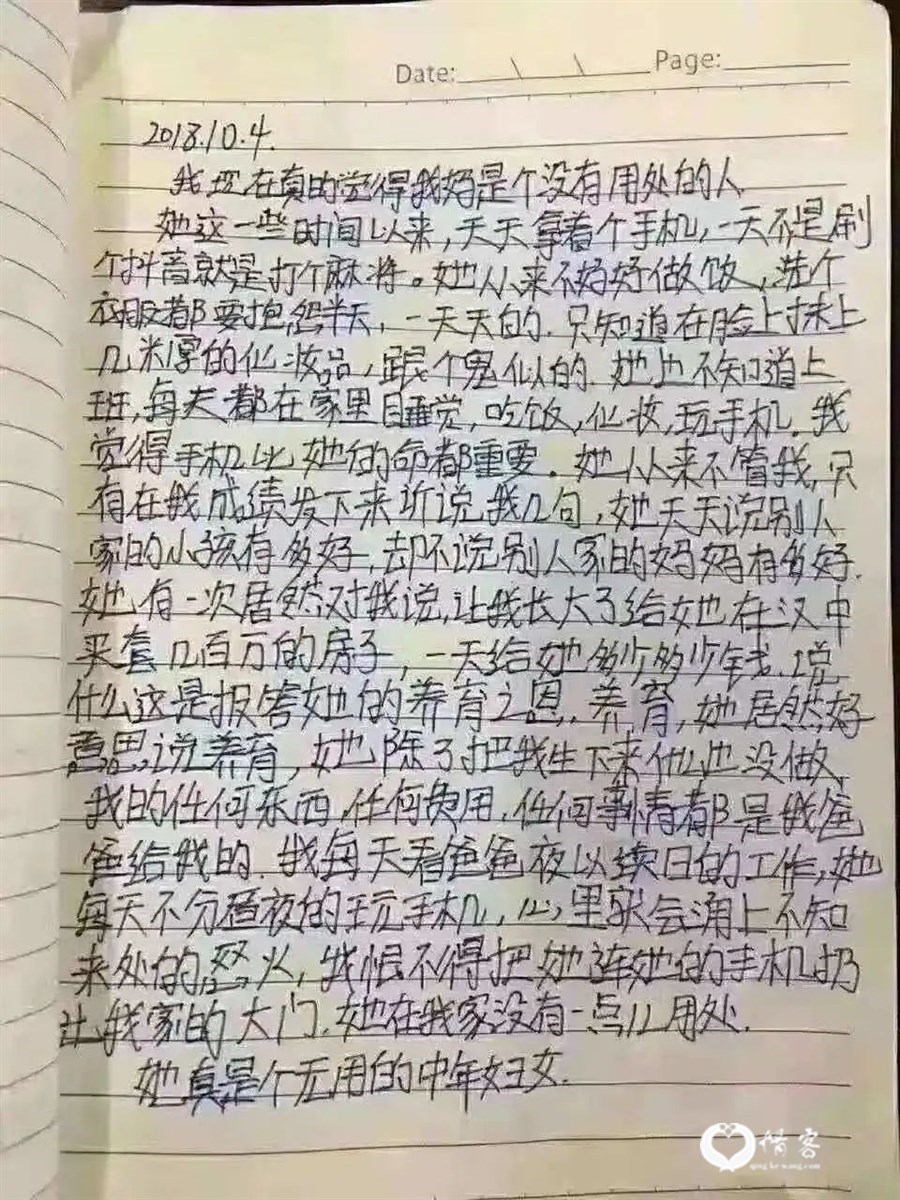 Date: \ \ Page:
2018.10.4.
我现在真的觉得我妈是个没有用处的人
她这一些时间以来,天天拿着个手机,一天不是刷
个抖音就是打个麻将。她从来不好好做饭,洗个
衣服都要抱怨半天,一天天的.只知道在脸上抹上
几米厚的化妆品,跟个鬼似的.她也不知道上
班,每天都在家里睡觉,吃饭,化妆,玩手机.我
觉得手机比她的命都重要.她从来不管我,只
有在我成绩发下来听说我几句,她天天说别人
家的小孩有多好,却不说别人家的妈妈有多好.
她有一次居然对我说,让我长大了给她在汉中
买套几百万的房子,一天给她多少多少钱.说
什么这是报答她的养育之恩.养育,她居然好
意思说养育,她除了把我生下来什么也没做.
我的任何东西,任何费用,任何事情都是我爸
爸给我的.我每天看爸爸夜以续日的工作,她
每天不分昼夜的玩手机,心里就会涌上不知
来处的怒火,我恨不得把她连她的手机扔
出我家的大门.她在我家没有一点儿用处.
她真是个无用的中年妇女.
情客
qing ke wang.com